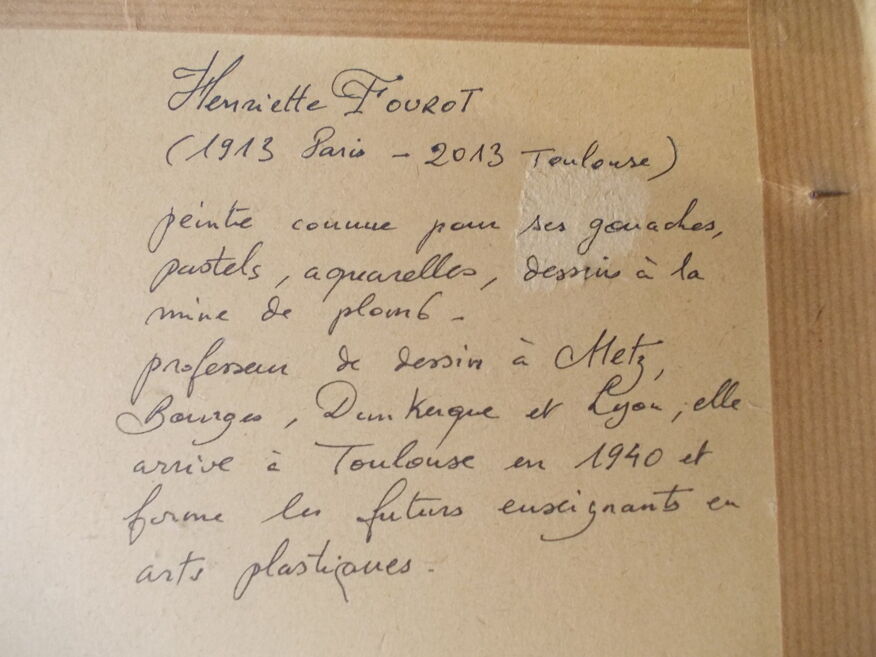 Henriette FOUROT
(1913 Paris - 2013 Toulouse)
peintre connue pour ses gouaches,
pastels, aquarelles, dessins à la
mine de plomb -
professeur de dessin à Metz,
Bourges, Dunkerque et Lyon, elle
arrive à Toulouse en 1940 et
forme les futurs enseignants en
arts plastiques.